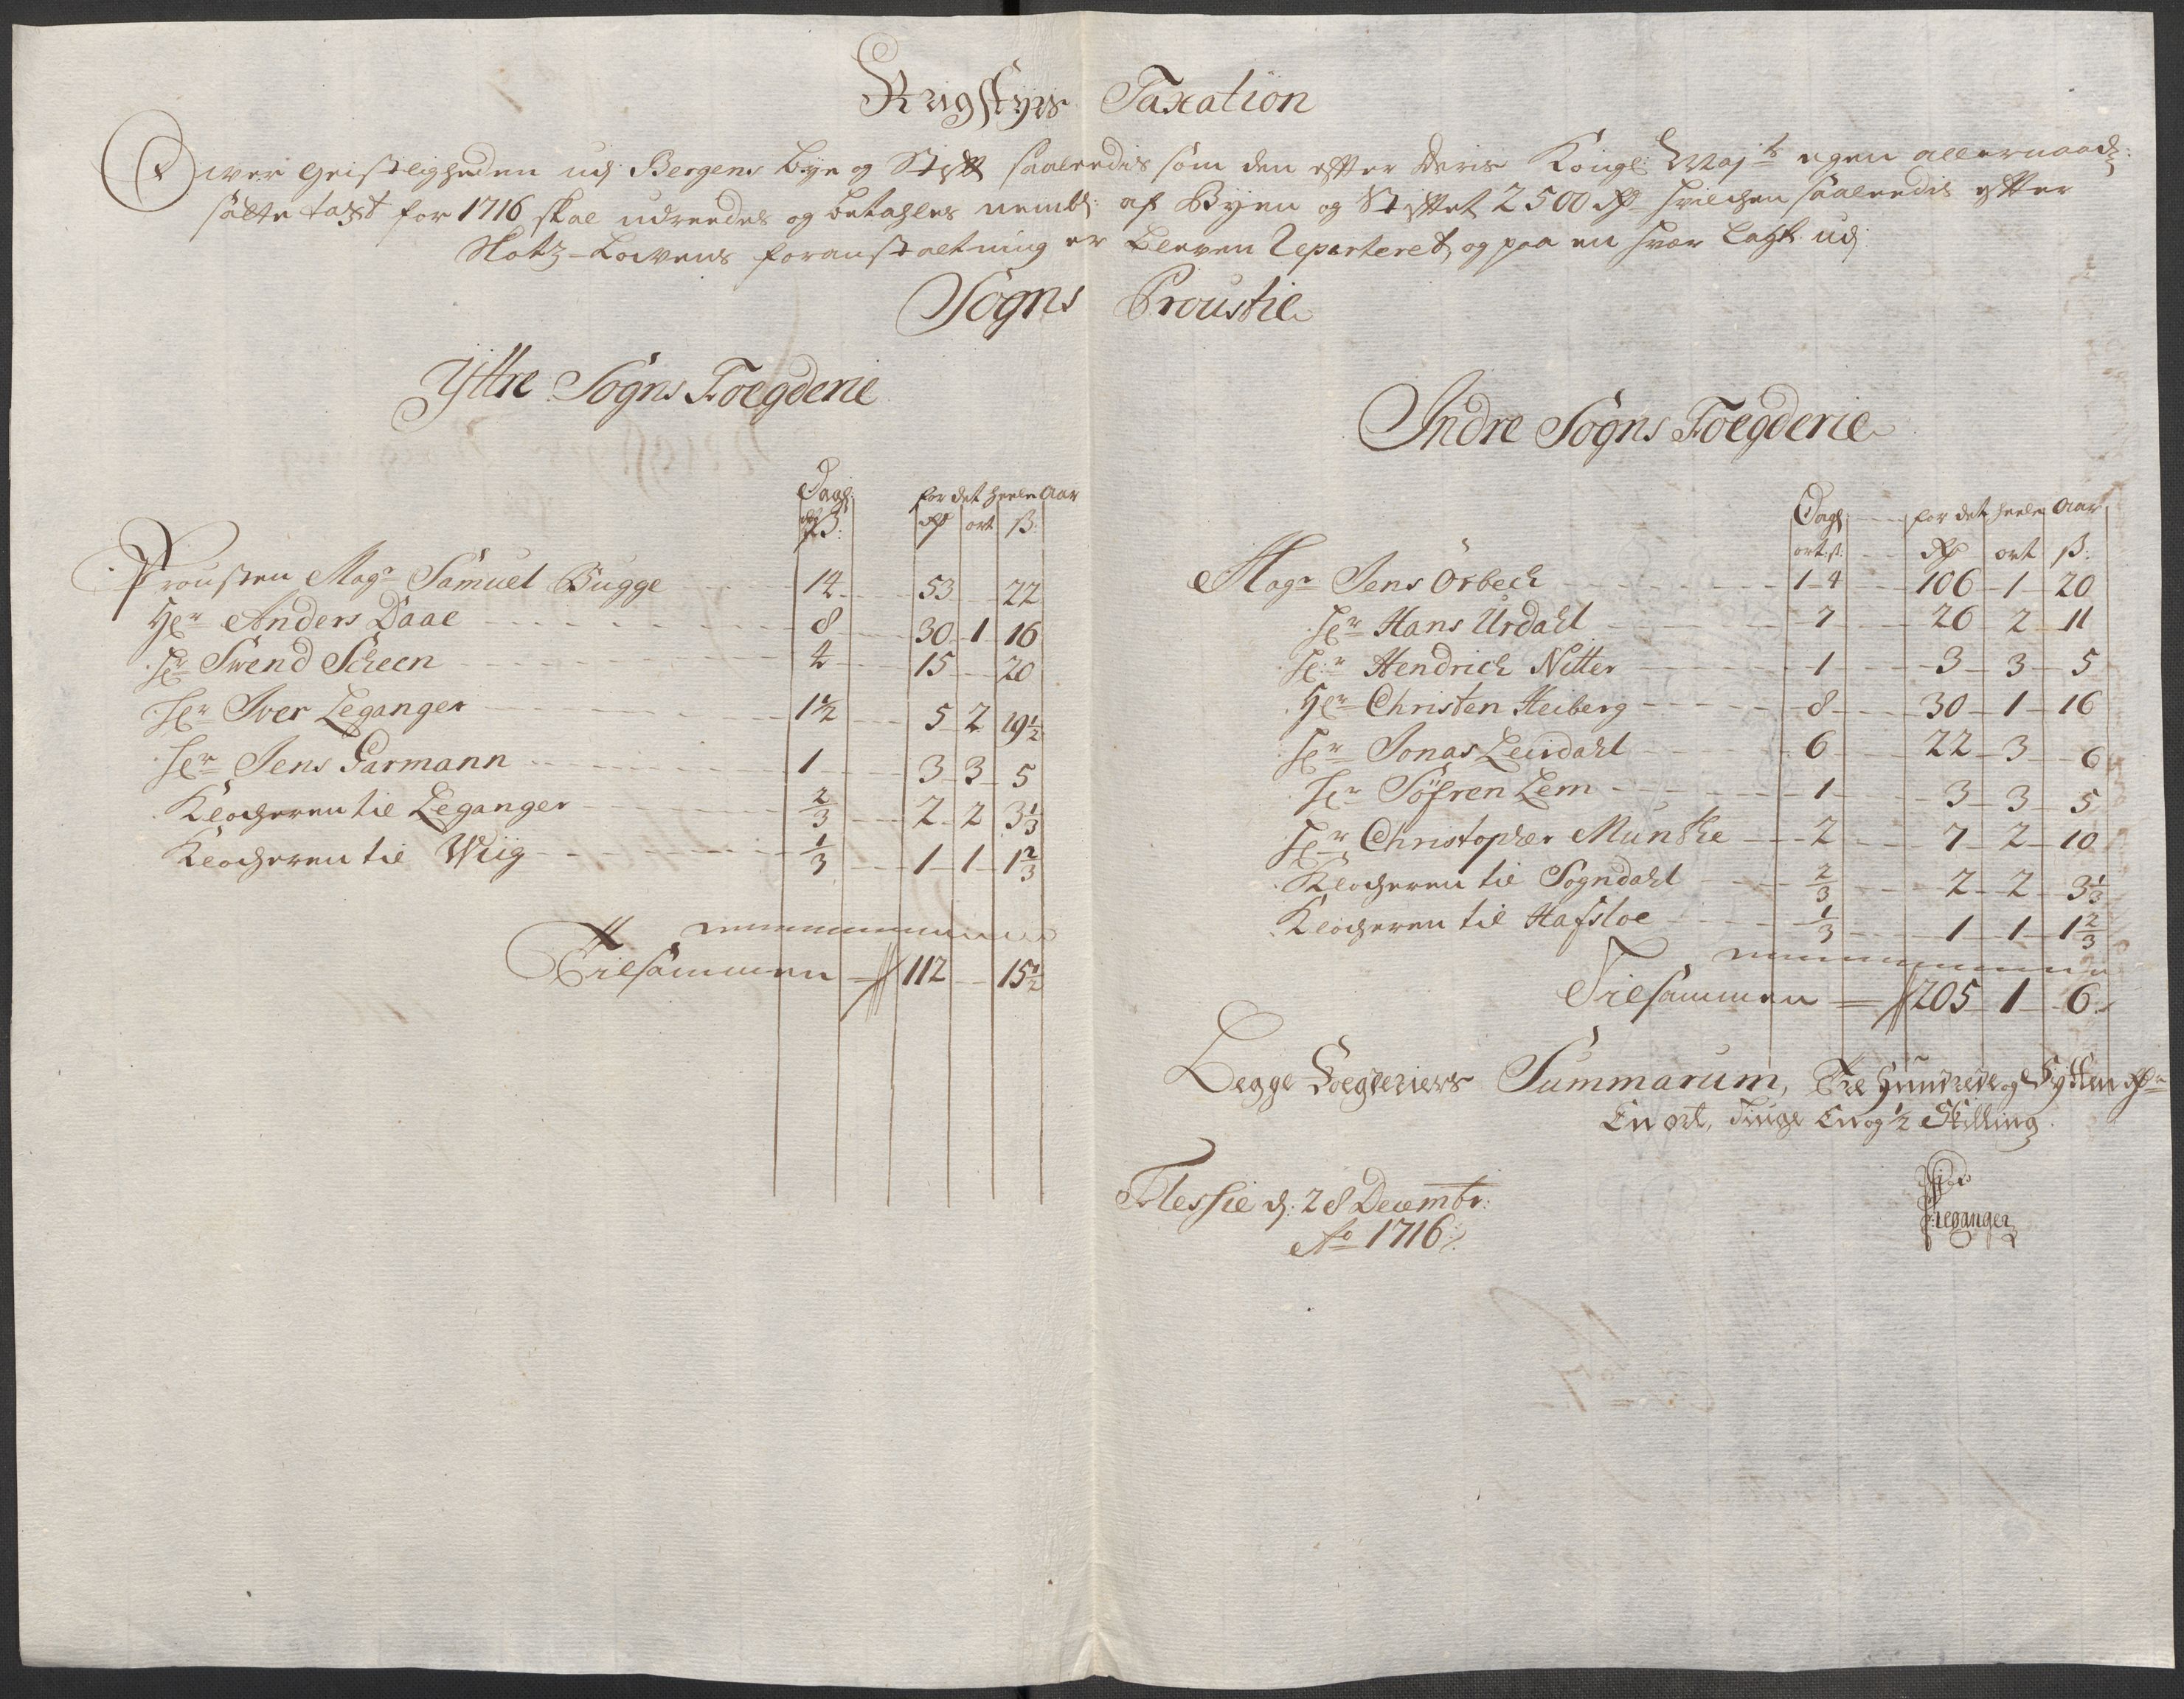 Krigstyrs Taxation
Ofwer Geistligheden udj Bergens bye og Stift saaleedis som den efter deris Kongl: May:ts egen allernaad:
satte taxt for 1716 skal udreedes og betahles nembl: af Byen og Stiftet 2500 Rdr hvilchen saaleedis efter
Slotz-Lowens foranstaltning er bleven Reparteret, og paa en hver lagt udj
Sogns Proustie
Yttre Sogns Foegderie
Dagl: for det heele Aar
ß: Rdr ort ß:
Prousten Magr Samuel Bugge 14 53 22
Hr Anders Daae 8 30 1 16
Hr Swend Scheen 4 15 20
Hr Iver Leganger 1½ 5 2 19½
Hr Jens Garmann 1 3 3 5
Klocheren til Leganger ⅔ 2 2 3⅓
Klocheren til Wiig ⅓ 1 1 1⅔
Tilsammen 112 15½
Indre Sogns Foegderie
Dagl: for det heele Aar
ort: ß: Rdr ort ß:
Magr Jens Örbech 1-4 106 1 20
Hr Hans Urdahl 7 26 2 11
Hr Hendrich Nitter 1 3 3 5
Hr Christen Heiberg 8 30 1 16
Hr Jonas Leirdahl 6 22 3 6
Hr Söfren Lem 1 3 3 5
Hr Christopher Munthe 2 7 2 10
Klocheren til Sogndahl ⅔ 2 2 3⅓
Klocheren til Hafsloe ⅓ 1 1 1⅔
Tilsammen 205 1 6
Begge Foegderiers Summarum, Tre Hundrede og Sytten Rdr
En ort, Tiuge En og ½ Skilling.
Flessie d: 28 Decembr:
Ao 1716
Leganger